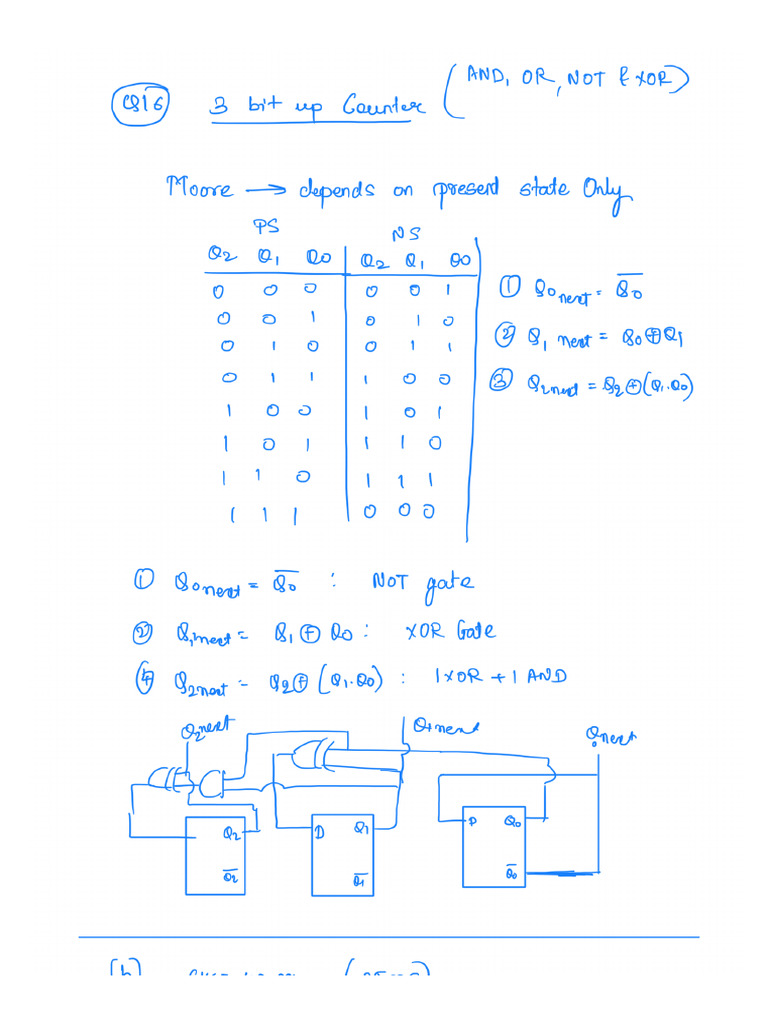 CS16 3 bit up Counter (AND, OR, NOT & XOR)
Moore → depends on present state Only
PS NS
Q2 Q1 Q0 Q2 Q1 Q0
0 0 0 0 0 1
0 0 1 0 1 0
0 1 0 0 1 1
0 1 1 1 0 0
1 0 0 1 0 1
1 0 1 1 1 0
1 1 0 1 1 1
1 1 1 0 0 0
① Q0next = Q̅0̅
② Q1 next = Q0⊕Q1
③ Q2next = Q2⊕(Q1.Q0)
① Q0next = Q̅0̅ : NOT gate
② Q1next = Q1⊕Q0 : XOR Gate
④ Q2next = Q2⊕(Q1.Q0) : 1XOR + 1 AND
Q2next Q1next Q0next
Q2 D Q1 D Q0
Q̅2̅ Q̅1̅ Q̅0̅